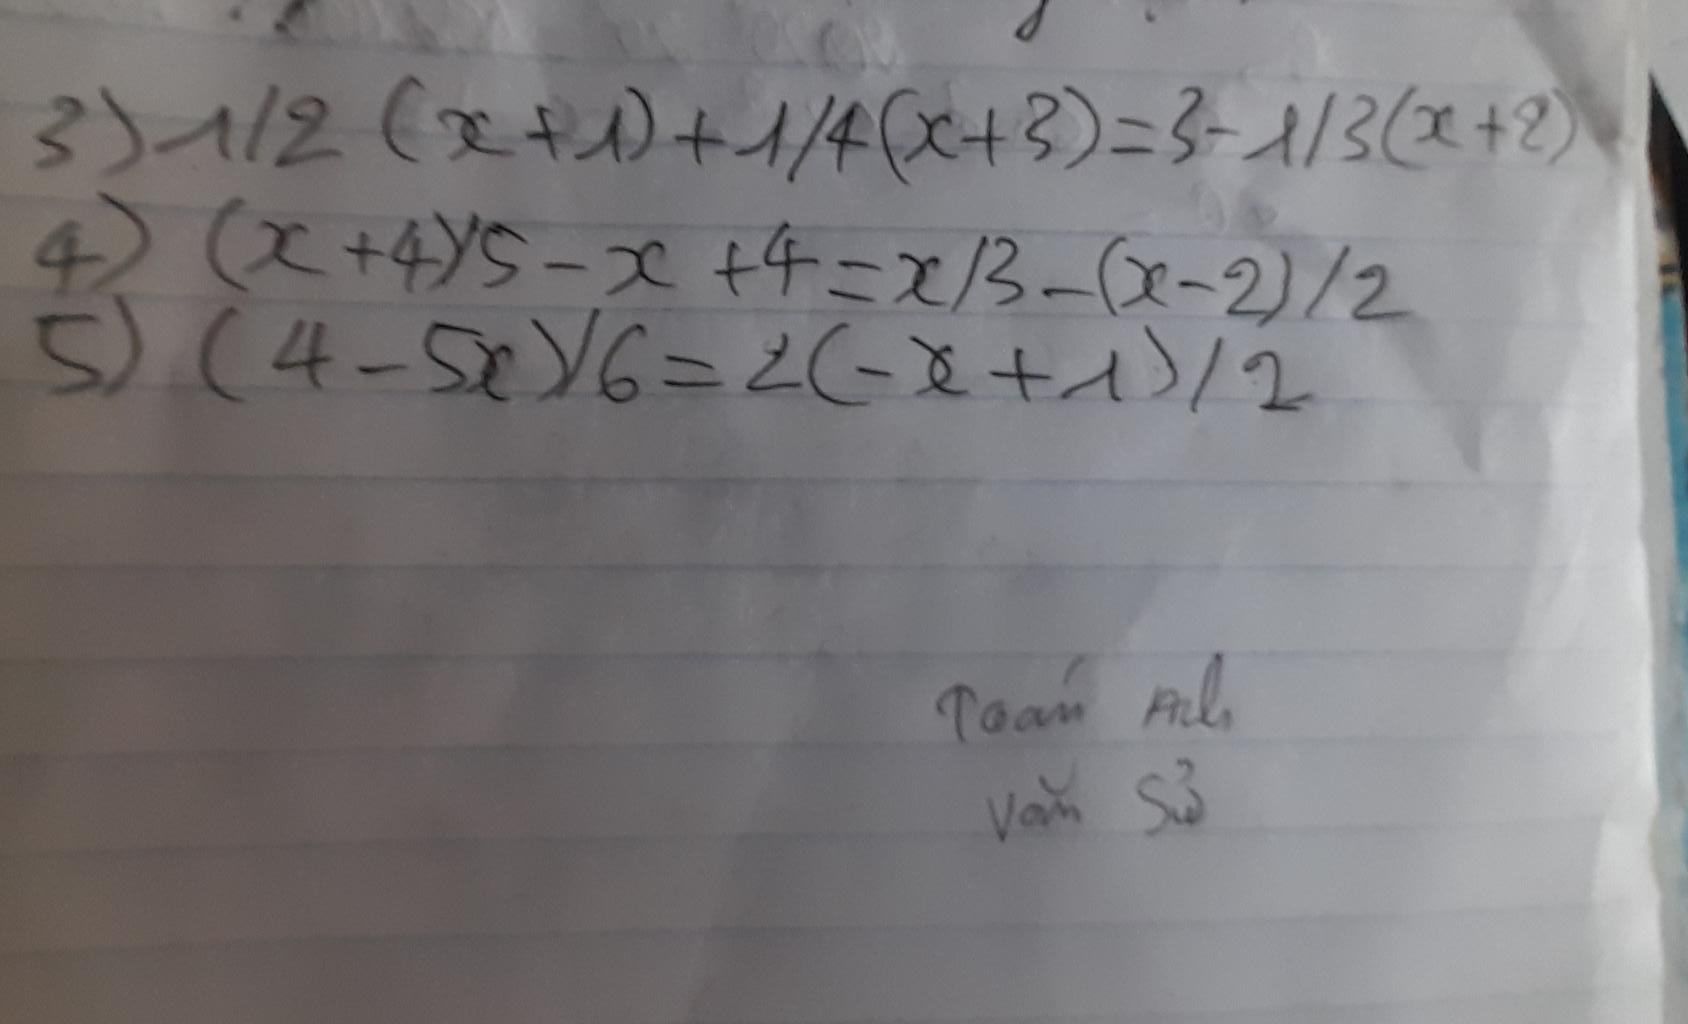 3) 1/2 (x+1)+1/4(x+3)=3-1/3(x+2)
4) (x+4)/5-x+4=x/3-(x-2)/2
5) (4-5x)/6=2(-x+1)/2
Toán Anh
Văn Sử